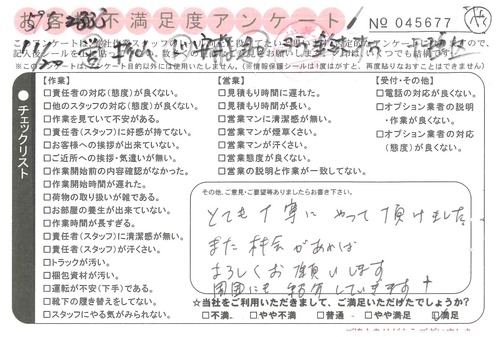 お客様不満足度アンケート
No 045677
チェックリスト
【作業】
□責任者の対応(態度)が良くない。
□他のスタッフの対応(態度)が良くない。
□作業を見ていて不安がある。
□責任者(スタッフ)に好感が持てない。
□お客様への挨拶が出来ていない。
□ご近所への挨拶・気遣いが無い。
□作業開始前の内容確認がなかった。
□作業開始時間が遅れた。
□荷物の取り扱いが雑である。
□お部屋の養生が出来ていない。
□作業時間が長すぎる。
□責任者(スタッフ)に清潔感が無い。
□責任者(スタッフ)が汗くさい。
□トラックが汚い。
□梱包資材が汚い。
□運転が不安(下手)である。
□靴下の履き替えをしてない。
□スタッフにやる気がみられない。
【営業】
□見積もり時間に遅れた。
□見積もり時間が長い。
□営業マンに清潔感が無い。
□営業マンが煙草くさい。
□営業マンが汗くさい。
□営業態度が良くない。
□営業の説明と作業が一致してない。
【受付・その他】
□電話の対応が良くない。
□オプション業者の説明
・作業が良くない。
□オプション業者の対応
(態度)が良くない。
その他、ご意見・ご要望等ありましたらお書き下さい。
とても丁寧にやって頂けました。
また機会があれば
よろしくお願いします
周囲にも紹介していきます
☆当社をご利用いただきまして、ご満足いただけたでしょうか?
□不満 □やや不満 □普通 □やや満足 □満足